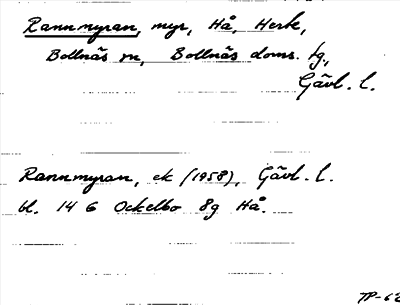 Rannmyran, myr, Hå, Herk,
Bollnäs sn, Bollnäs doms. tg,
Gävl. l.
Rannmyran, ek (1958), Gävl. l.
bl. 14 G Ockelbo 8g Hå.
TP-62